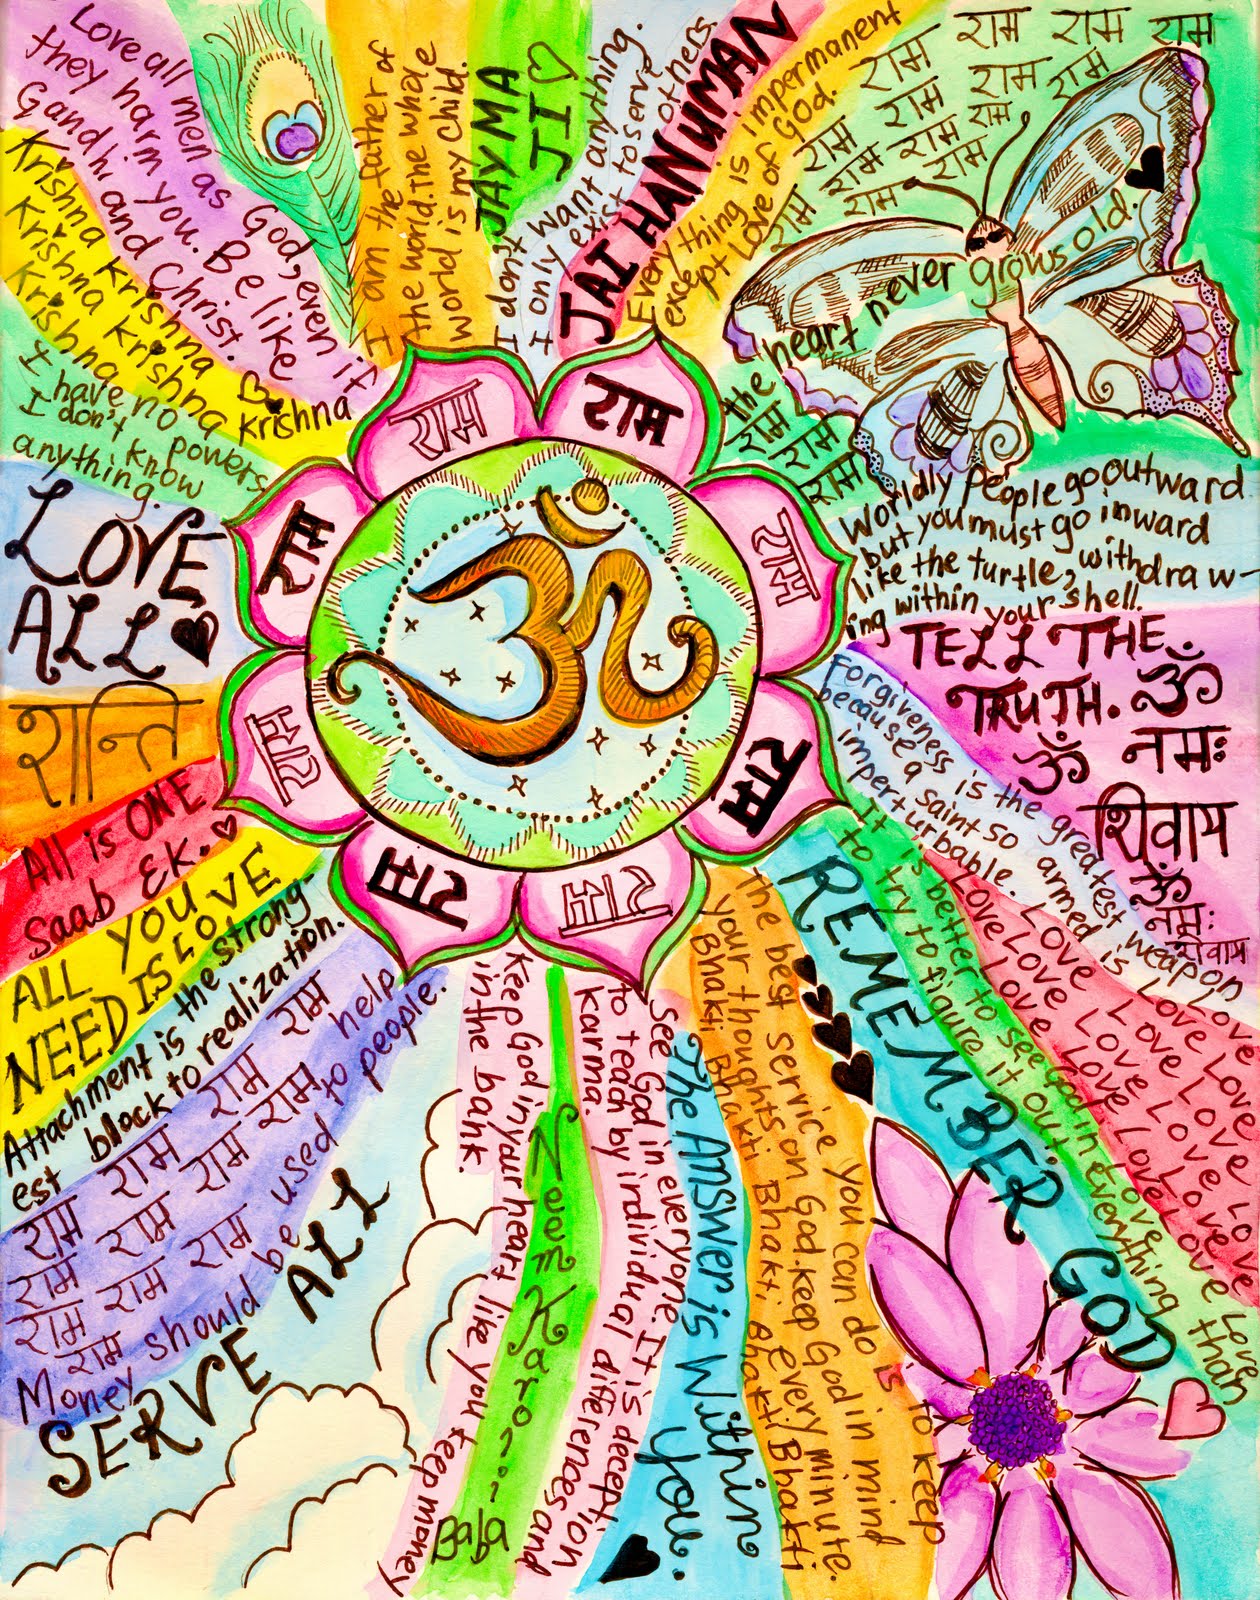 Love all men as God, even if
they harm you. Be like
Gandhi and Christ.
Krishna Krishna Krishna
Krishna Krishna Krishna
Krishna Krishna
I have no powers
I don't know
anything.
LOVE
ALL
शान्ति
All is ONE
Saab EK.
ALL YOU
NEED IS LOVE
Attachment is the strong-
est block to realization.
राम राम राम राम
राम राम राम
राम राम राम
राम
Money should be used to help people.
SERVE ALL
I am the father of
the world. The whole
world is my child.
JAY MA
JI
I don't want anything.
I only exist to serve
others.
JAI HANUMAN
Every thing is impermanent
except Love of God.
राम राम राम राम
राम राम राम
राम राम राम
राम राम राम
राम
the heart never grows old.
राम
राम
राम
Worldly People go outward
but you must go inward
like the turtle, withdraw-
ing within your shell.
TELL THE
TRUTH. ॐ
ॐ नमः
शिवाय
ॐ
नमः
शिवाय
Forgiveness is the greatest weapon
because a saint so armed is
imperturbable.
Love Love Love Love Love Love
Love Love Love Love Love Love
Love Love Love Love Love Love
It is better to see God in everything than
to try to figure it out.
REMEMBER GOD
The best service you can do is to keep
your thoughts on God. Keep God in mind
every minute.
Bhakti Bhakti Bhakti Bhakti Bhakti
The Answer is Within
You.
See God in everyone. It is deception
to teach by individual differences and
karma.
Neem Karoli
Baba
Keep God in your heart like you keep money
in the bank.
राम
राम
राम
राम
राम
राम
राम
राम
ॐ